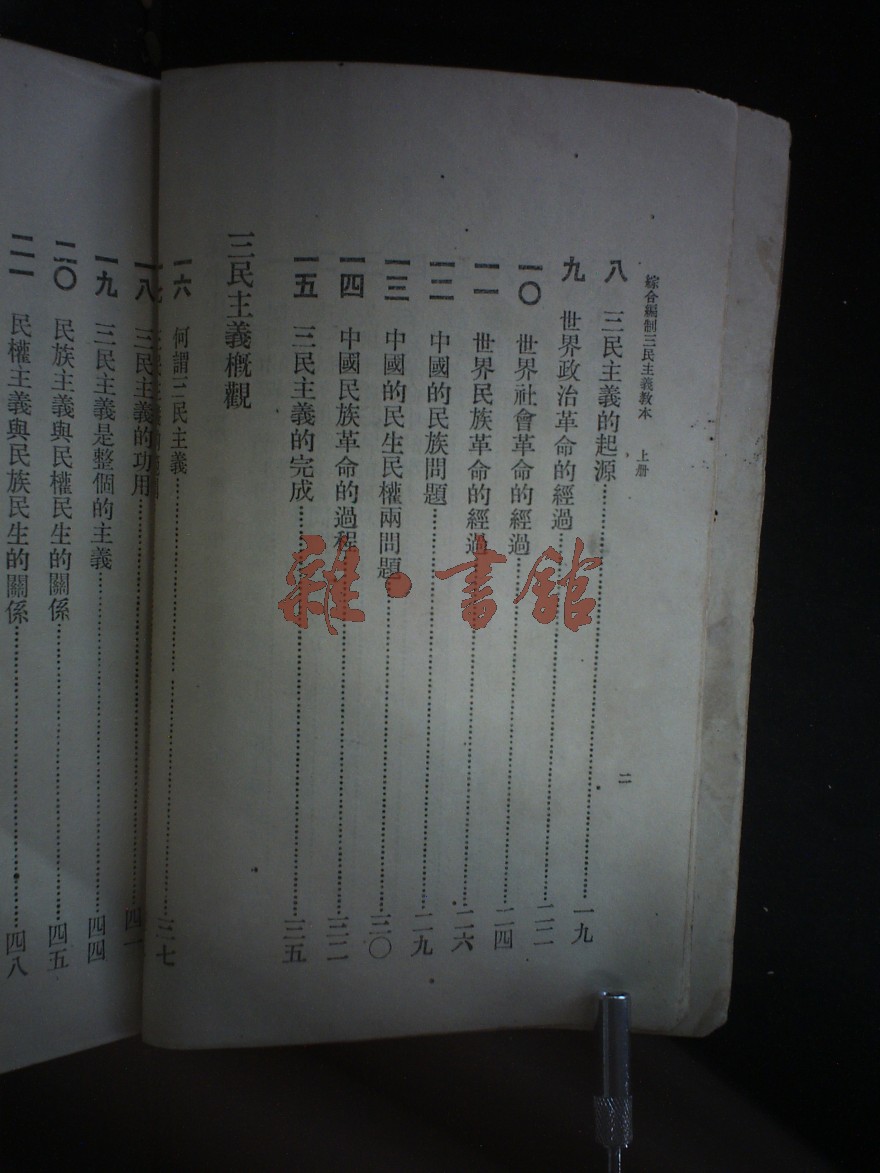 綜合編制三民主義教本　上册
二
八　三民主義的起源……一九
九　世界政治革命的經過……二二
一〇　世界社會革命的經過……二四
一一　世界民族革命的經過……二六
一二　中國的民族問題……二九
一三　中國的民生民權兩問題……三〇
一四　中國民族革命的過程……三二
一五　三民主義的完成……三五
三民主義概觀
一六　何謂三民主義……三七
一八　三民主義的功用……四
一九　三民主義是整個的主義……四四
二〇　民族主義與民權民生的關係……四五
二一　民權主義與民族民生的關係……四八
雜·書館